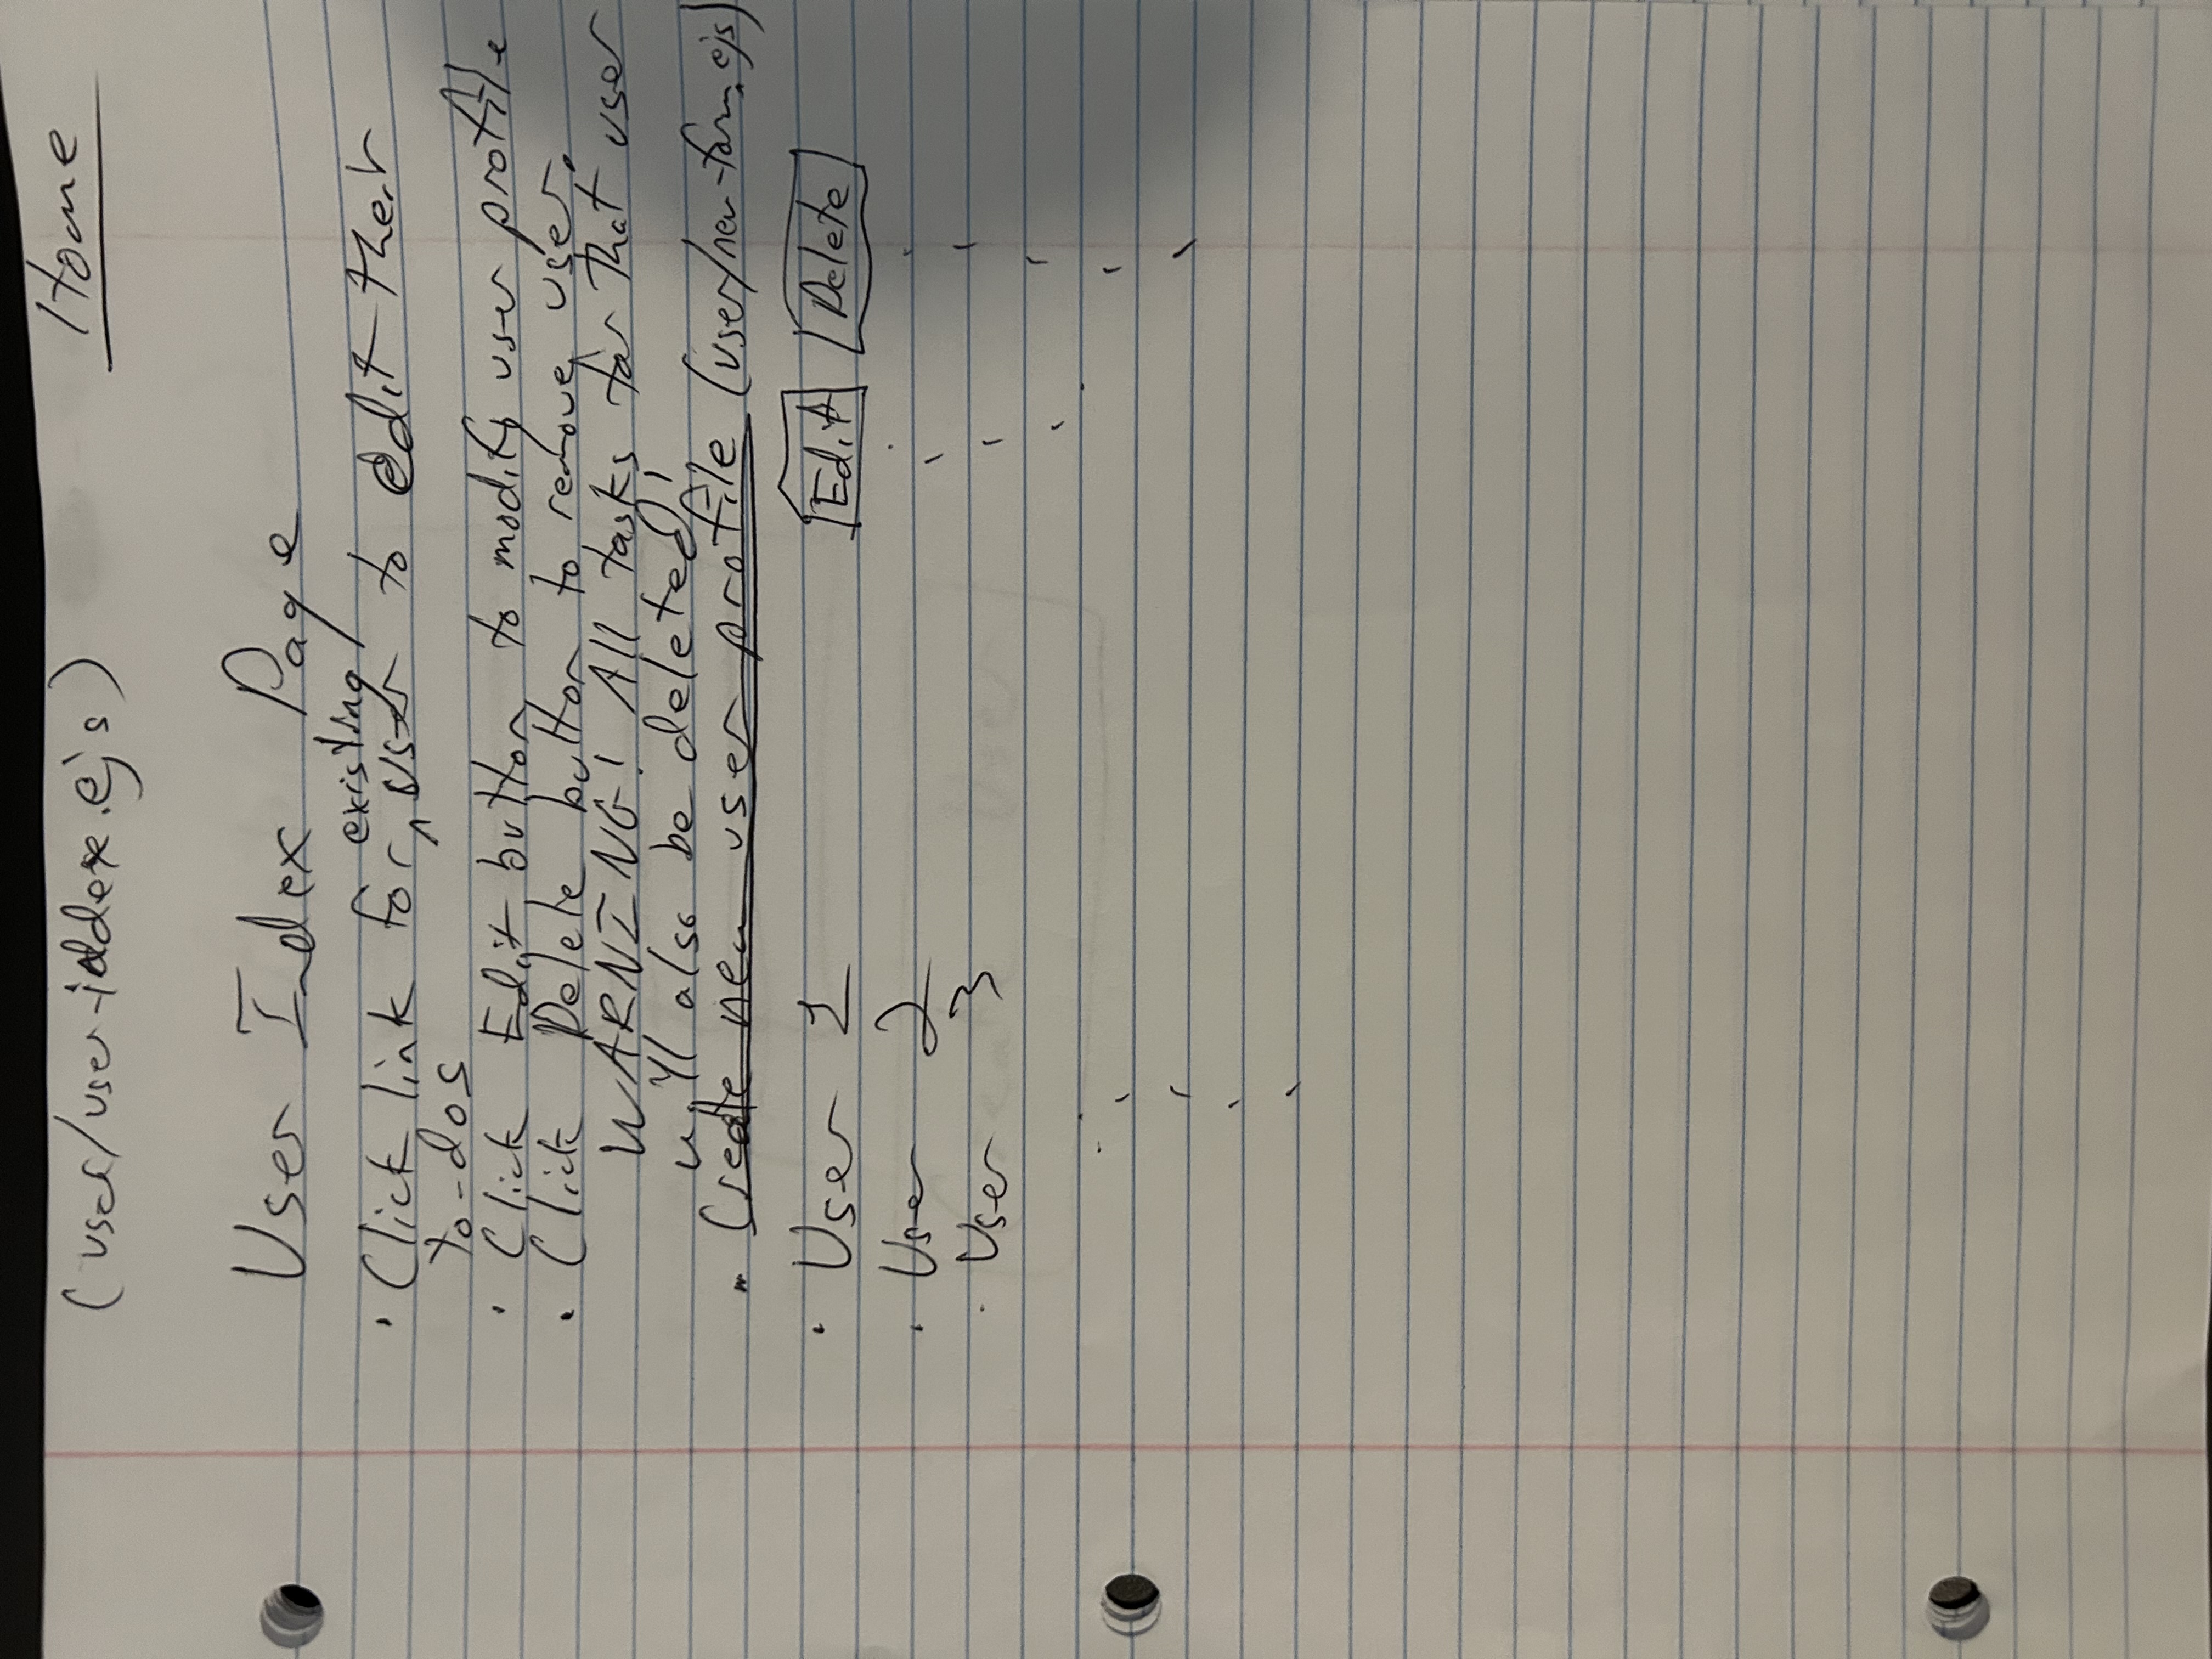 (user/user-index.ejs) Home
User Index Page
existing
• Click link for ^ user to edit their
to-dos
• Click Edit button to modify user profile
• Click Delete button to remove user.
WARNING! All tasks for that user
will also be deleted!
• Create new user profile (user/new-form.ejs)
• User 1 Edit Delete
• User 2
• User 3